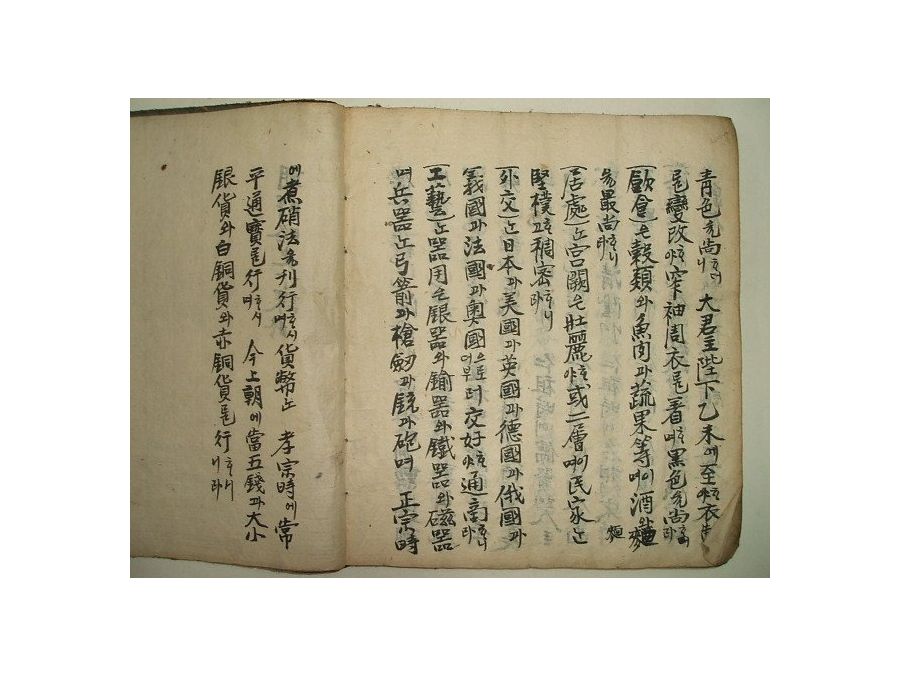 靑色을尙ᄒᆞ더니 大君主陛下乙未에至ᄒᆞ야衣
를變改ᄒᆞ야窄袖周衣를着ᄒᆞ며黑色을尙ᄒᆞ니라
(飮食)은穀類와魚肉과蔬果等이며酒와麵
을最尙ᄒᆞ니라
(居處)는宮闕은壯麗ᄒᆞ야或二層이며民家는
堅樸고稠密ᄒᆞ니라
(外交)는日本과美國과英國과德國과俄國과
義國과法國과奧國으로더부터交好ᄒᆞ야通商ᄒᆞ니라
(工藝)는器用은銀器와鍮器와鐵器와磁器
며兵器는弓箭과槍劒과銃과砲며 正宗時
에煮硝法을刊行ᄒᆞ시며貨幣는 孝宗時에常
平通寶를行ᄒᆞ시며 今上朝에當五錢과大小
銀貨와白銅貨와赤銅貨를行ᄒᆞ니라